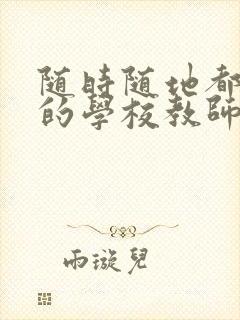 随時随地都
的學校教師
雨漩兒